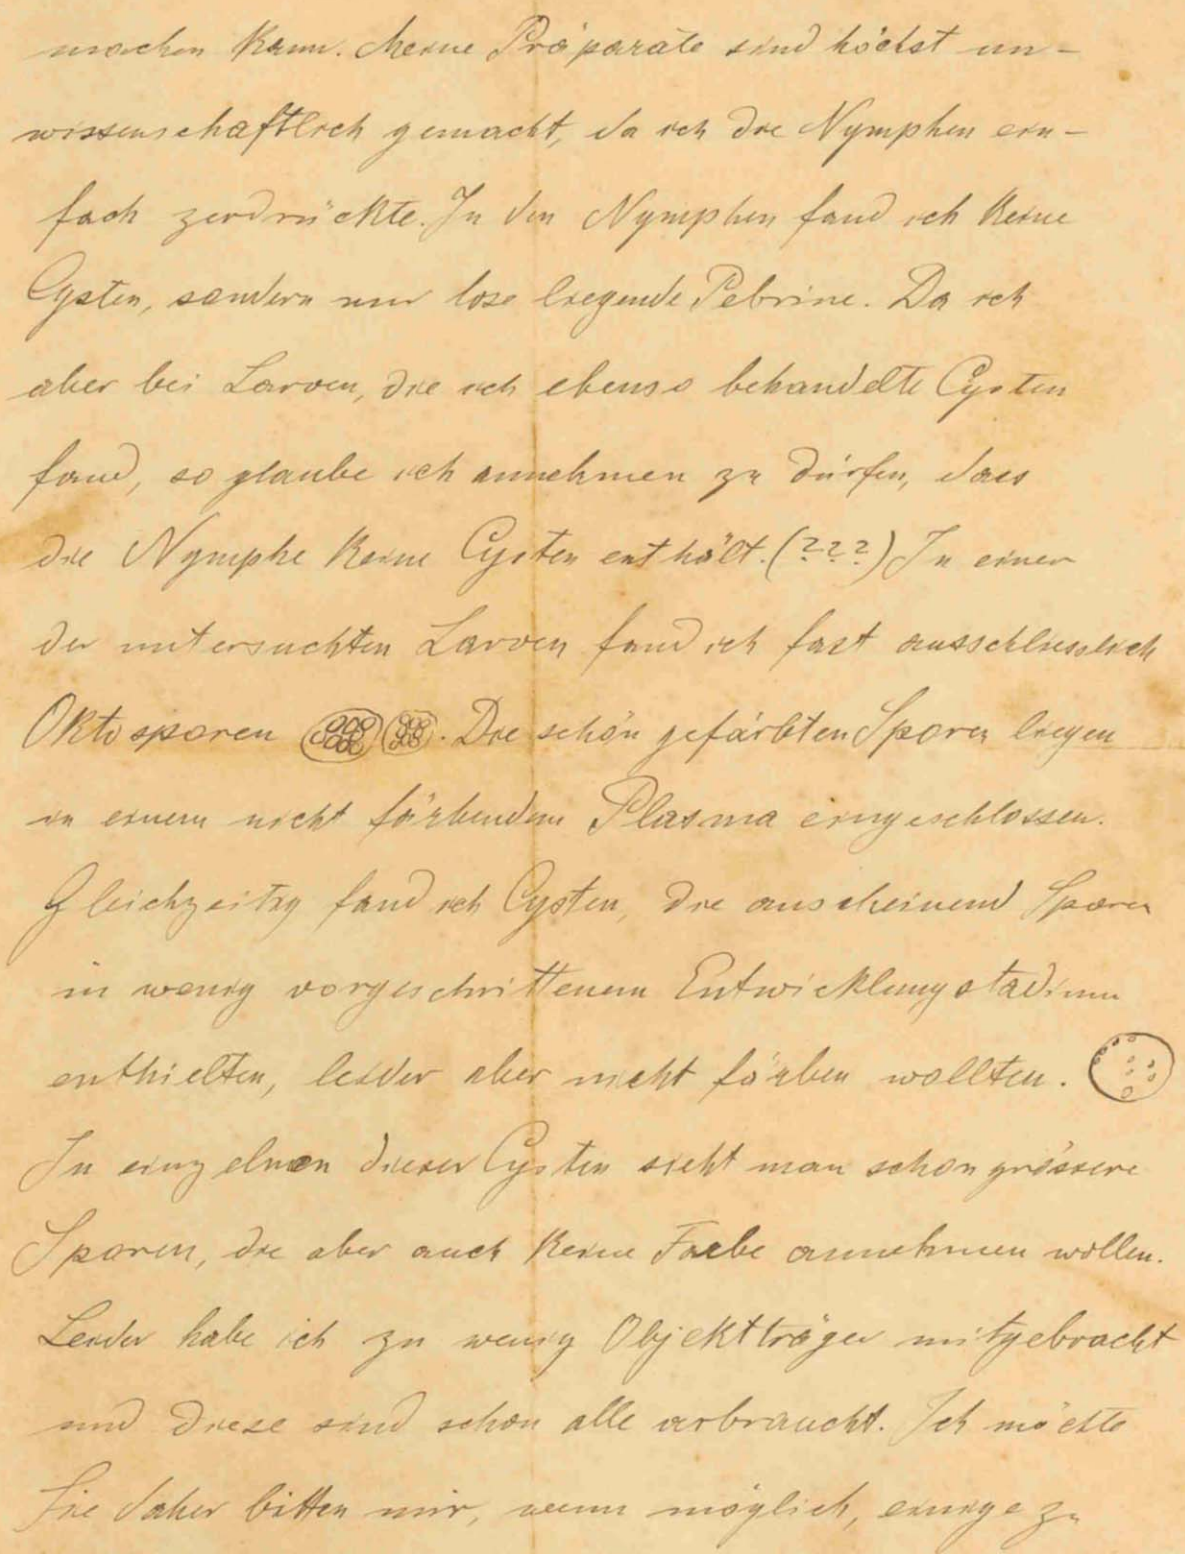 machen kann. Meine Präparate sind höchst un-
wissenschaftlich gemacht, da ich die Nymphen ein-
fach zerdrückte. In den Nymphen fand ich keine
Cysten, sondern nur lose liegende Pebrine. Da ich
aber bei Larven, die ich ebenso behandelte Cysten
fand, so glaube ich annehmen zu dürfen, dass
die Nymphe keine Cysten enthält. (???) In einer
der untersuchten Larven fand ich fast ausschliesslich
Oktosporen . Die schön gefärbten Sporen liegen
in einem nicht färbendem Plasma eingeschlossen.
Gleichzeitig fand ich Cysten, die anscheinend Sporen
in wenig vorgeschrittenem Entwicklungstadium
enthielten, leider aber nicht färben wollten.
In einzelnen dieser Cysten sieht man schon grössere
Sporen, die aber auch keine Farbe annehmen wollen.
Leider habe ich zu wenig Objektträger mitgebracht
und diese sind schon alle verbraucht. Ich möchte
Sie daher bitten mir, wenn möglich, einige zu